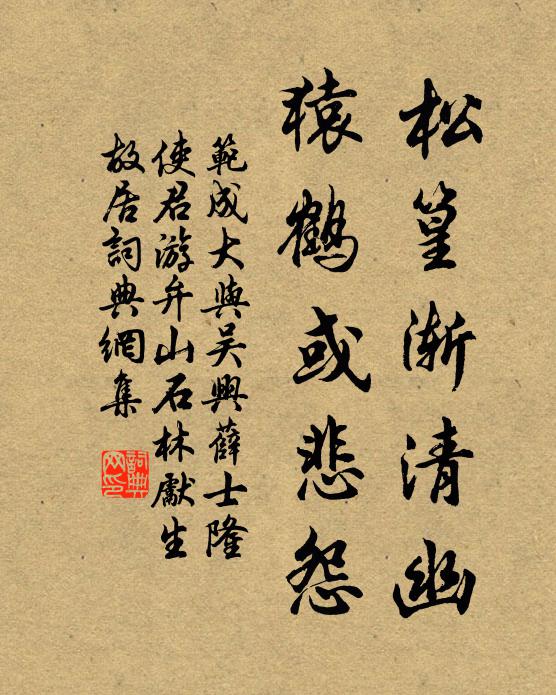 松篁渐清幽
猿鶴或悲怨
範成大與吴興薛士隆
使君游弁山石林獻生
故居詞典網集
詞典网印